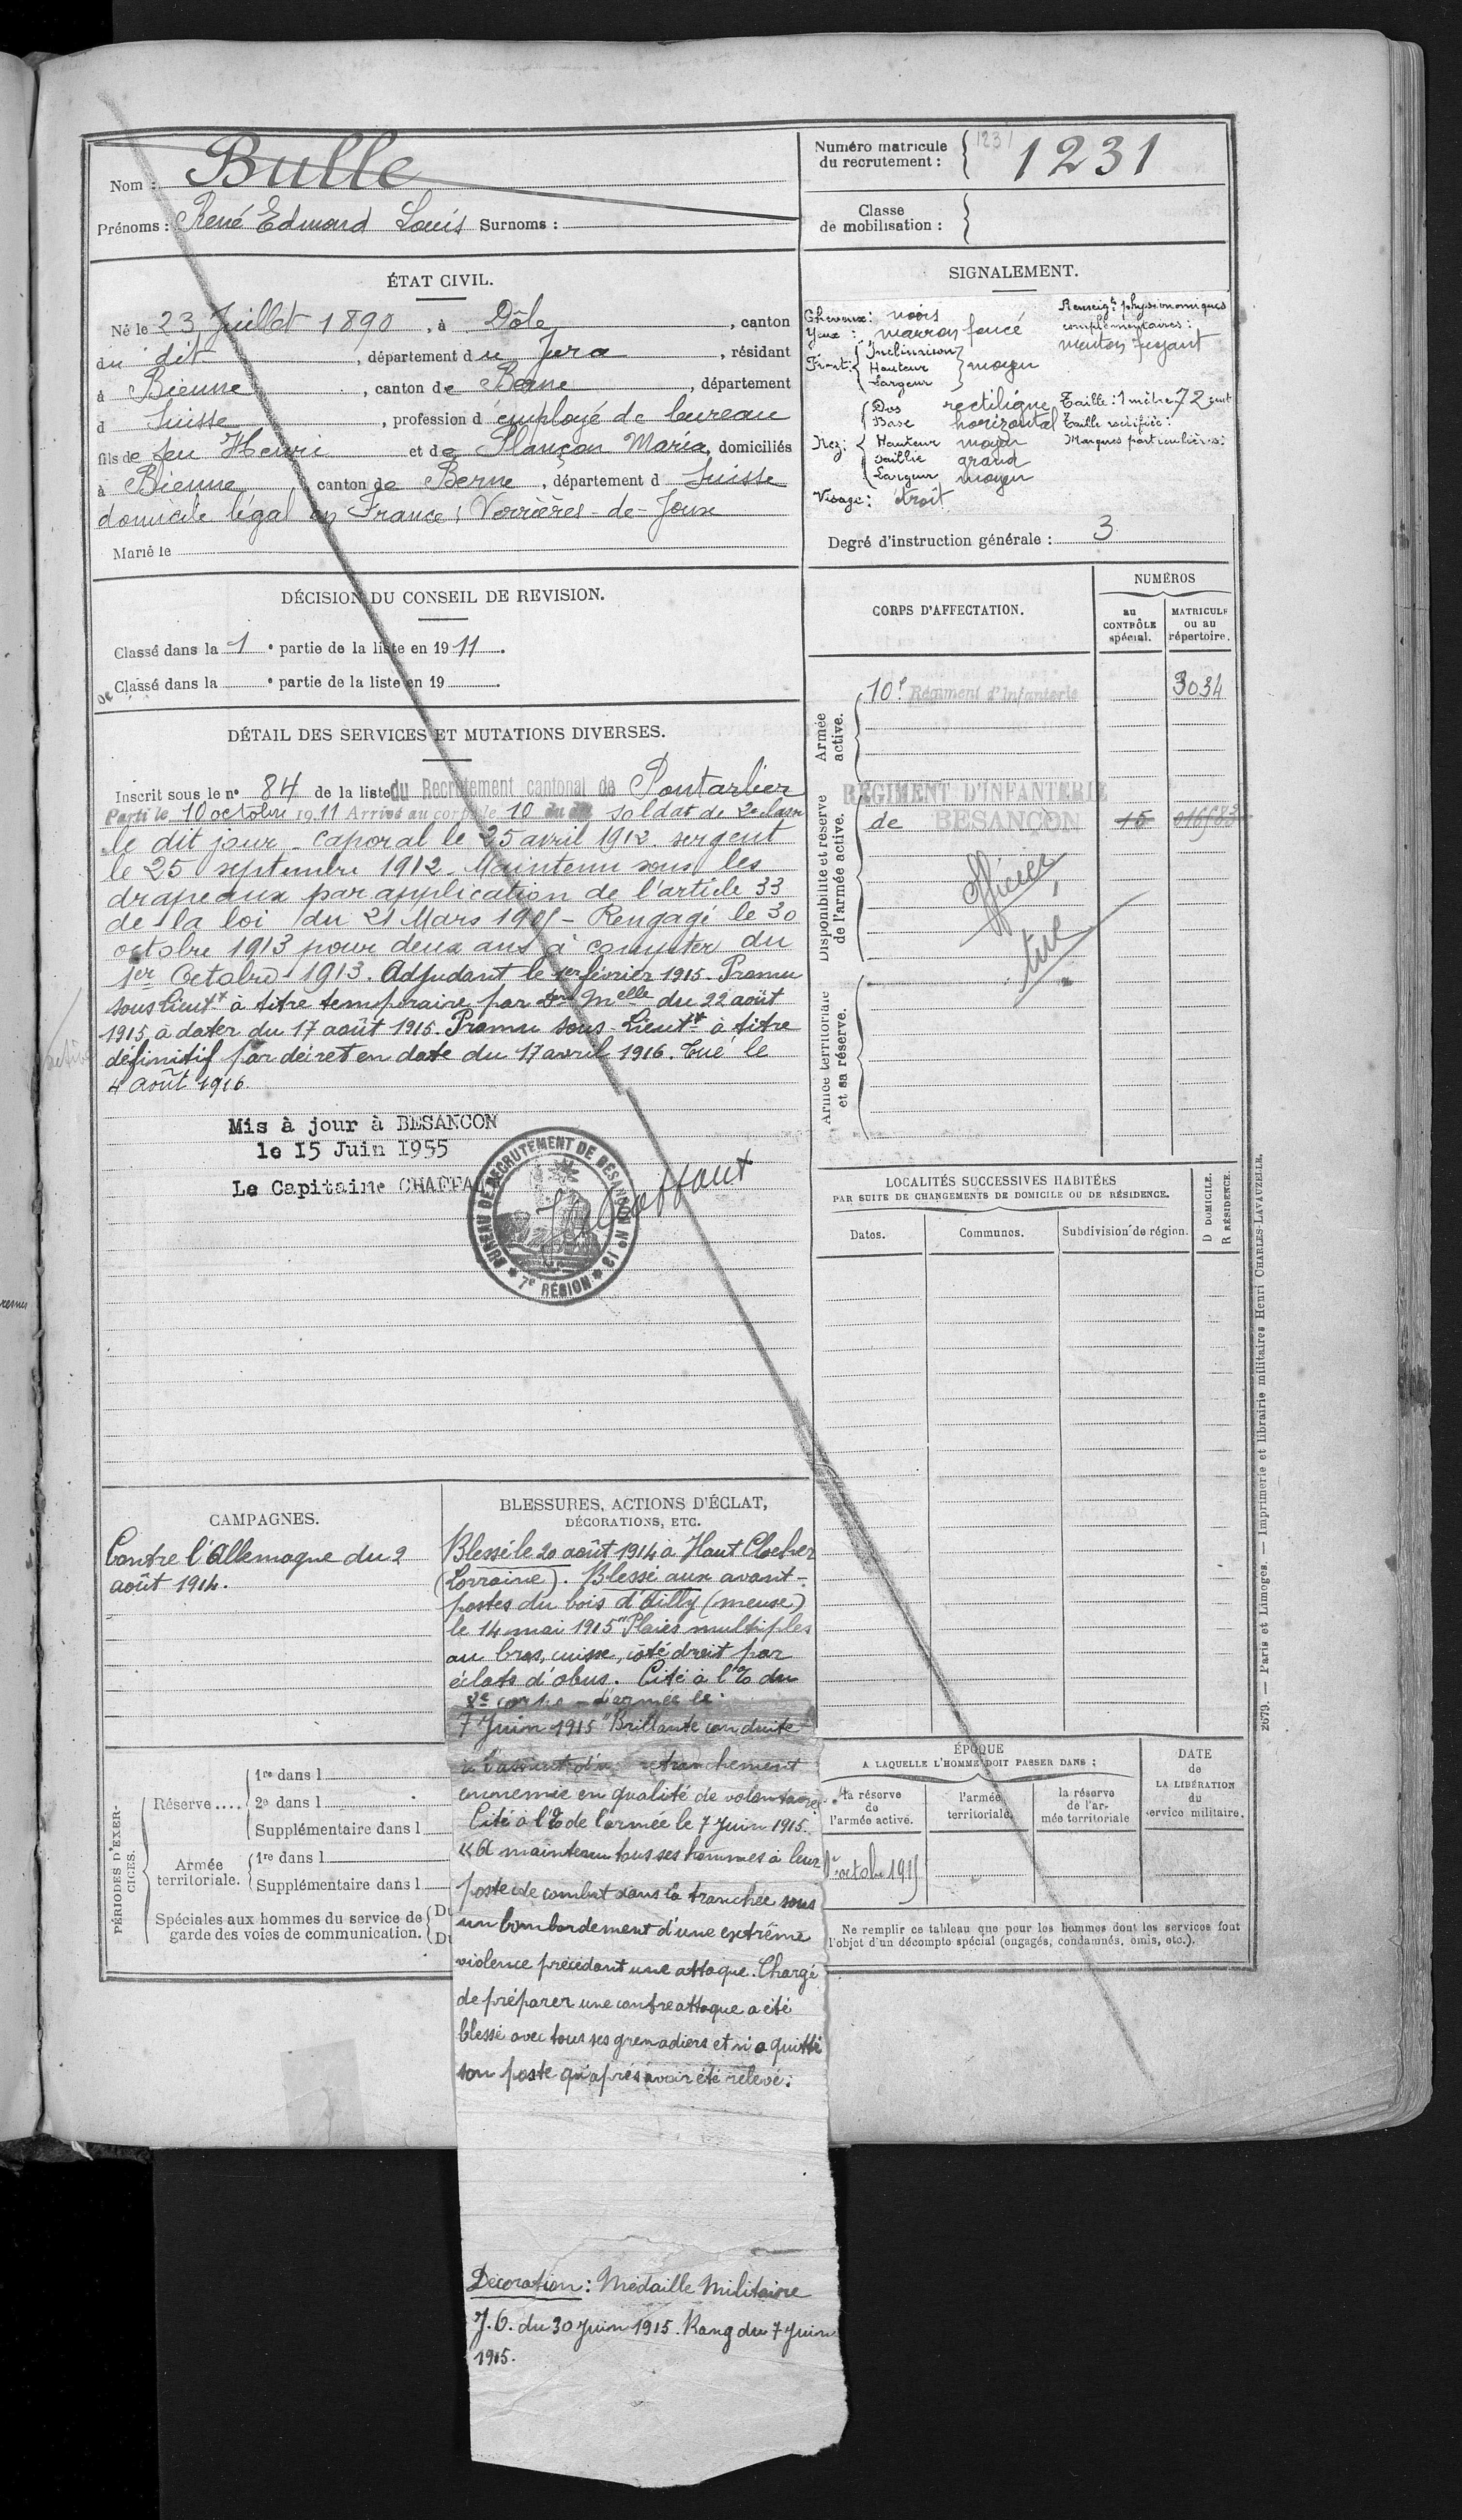 Nom : Bulle
Prénoms : René Edmond Louis Surnoms :
Numéro matricule
du recrutement :
1231
1231
Classe
de mobilisation :
ÉTAT CIVIL.
Né le 23 Juillet 1890, à Dôle, canton
du dit, département du Jura, résidant
à Bienne, canton de Berne, département
d Suisse, profession d'employé de bureau
fils de feu Henri et de Plançon Maria, domiciliés
à Bienne canton de Berne, département d Suisse
domicile légal en France : Verrières-de-Joux
Marié le
SIGNALEMENT.
Cheveux : noirs
Yeux : marron foncé
Front : Inclinaison
Hauteur moyen
Largeur
Nez : Dos rectiligne
Base horizontal
Hauteur moyen
Saillie grand
Largeur moyen
Visage : étroit
Renseigts physionomiques
complémentaires :
menton fuyant
Taille : 1 mètre 72 cent
Taille rectifiée :
Marques particulières :
Degré d'instruction générale : 3
DÉCISION DU CONSEIL DE REVISION.
Classé dans la 1e partie de la liste en 1911.
Classé dans la e partie de la liste en 19
DÉTAIL DES SERVICES ET MUTATIONS DIVERSES.
Inscrit sous le n° 84 de la liste du Recrutement cantonal de Pontarlier
Parti le 10 octobre 1911 Arrivé au corps le 10 du dit soldat de 2e classe
le dit jour - caporal le 25 avril 1912. sergent
le 25 septembre 1912. Maintenu sous les
drapeaux par application de l'article 33
de la loi du 21 Mars 1905 - Rengagé le 30
octobre 1913 pour deux ans à compter du
1er Octobre 1913. Adjudant le 1er février 1915. Promu
sous lieutt à titre temporaire par don Melle du 22 août
1915 à dater du 17 août 1915. Promu sous-Lieutt à titre
définitif par décret en date du 17 avril 1916. Tué le
4 août 1916.
Mis à jour à BESANCON
le I5 Juin I955
Le Capitaine
BUREAU DE RECRUTEMENT DE BESANCON N° 13
7e RÉGION
CORPS D'AFFECTATION.
NUMÉROS
au
CONTRÔLE
spécial.
MATRICULE
ou au
répertoire.
Armée
active.
10e Régiment d'Infanterie 3034
Disponibilité et réserve
de l'armée active.
RÉGIMENT D'INFANTERIE
de BESANÇON 15
Officier
tué
Armée territoriale
et sa réserve.
LOCALITÉS SUCCESSIVES HABITÉES
PAR SUITE DE CHANGEMENTS DE DOMICILE OU DE RÉSIDENCE.
Dates.
Communes.
Subdivision de région.
D DOMICILE.
R RÉSIDENCE.
CAMPAGNES.
Contre l'Allemagne du 2
août 1914.
BLESSURES, ACTIONS D'ÉCLAT,
DÉCORATIONS, ETC.
Blessé le 20 août 1914 à Haut Clocher
(Lorraine). Blessé aux avant-
postes du bois d'Ailly (meuse)
le 14 mai 1915 "Plaies multiples
au bras, cuisse, côté droit par
éclats d'obus. Cité à l'% du
8e corps d'armée le
7 Juin 1915 "Brillante conduite
à l'assaut d'un retranchement
ennemie en qualité de volontaire.
Cité à l'% de l'armée le 7 Juin 1915.
«A maintenu tous ses hommes à leur
poste de combat dans la tranchée sous
un bombardement d'une extrême
violence précédant une attaque. Chargé
de préparer une contre attaque a été
blessé avec tous ses grenadiers et n'a quitté
son poste qu'après avoir été relevé.
Décoration : Médaille Militaire
J.O. du 30 Juin 1915. Rang du 7 Juin
1915.
PÉRIODES D'EXER-
CICES.
Réserve ....
1re dans l
2e dans l
Supplémentaire dans l
Armée
territoriale.
1re dans l
Supplémentaire dans l
Spéciales aux hommes du service de
garde des voies de communication.
Du
Du
ÉPOQUE
A LAQUELLE L'HOMME DOIT PASSER DANS :
la réserve
de
l'armée active.
l'armée
territoriale.
la réserve
de l'ar-
mée territoriale
DATE
de
LA LIBÉRATION
du
service militaire.
1er octobre 1915
Ne remplir ce tableau que pour les hommes dont les services font
l'objet d'un décompte spécial (engagés, condamnés, omis, etc.).
2679. — Paris et Limoges. — Imprimerie et librairie militaires Henri CHARLES-LAVAUZELLE.